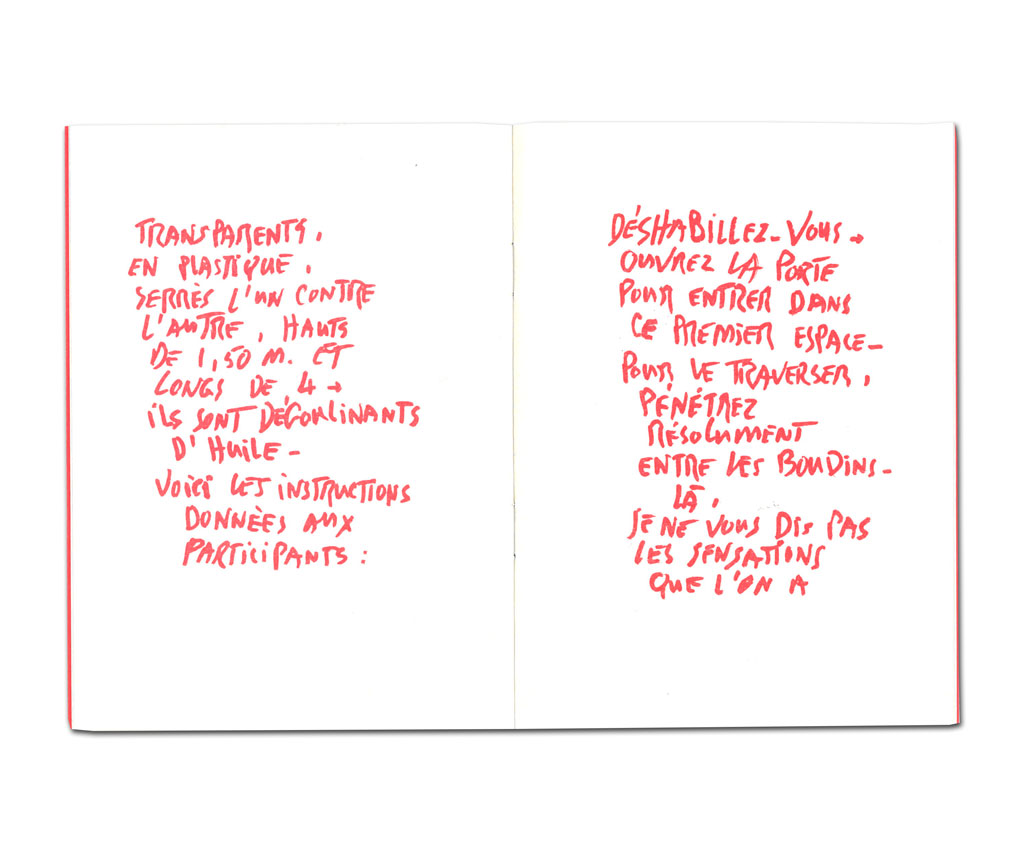 TRANSPARENTS,
EN PLASTIQUE,
SERRÈS L'UN CONTRE
L'AUTRE, HAUTS
DE 1,50 M. ET
LONGS DE 4 →
ILS SONT DÉGOULINANTS
D'HUILE –
VOICI LES INSTRUCTIONS
DONNÈES AUX
PARTICIPANTS :
DÉSHABILLEZ-VOUS →
OUVREZ LA PORTE
POUR ENTRER DANS
CE PREMIER ESPACE –
POUR LE TRAVERSER,
PÉNÉTREZ
RÉSOLUMENT
ENTRE LES BOUDINS –
LÀ,
JE NE VOUS DIS PAS
LES SENSATIONS
QUE L'ON A